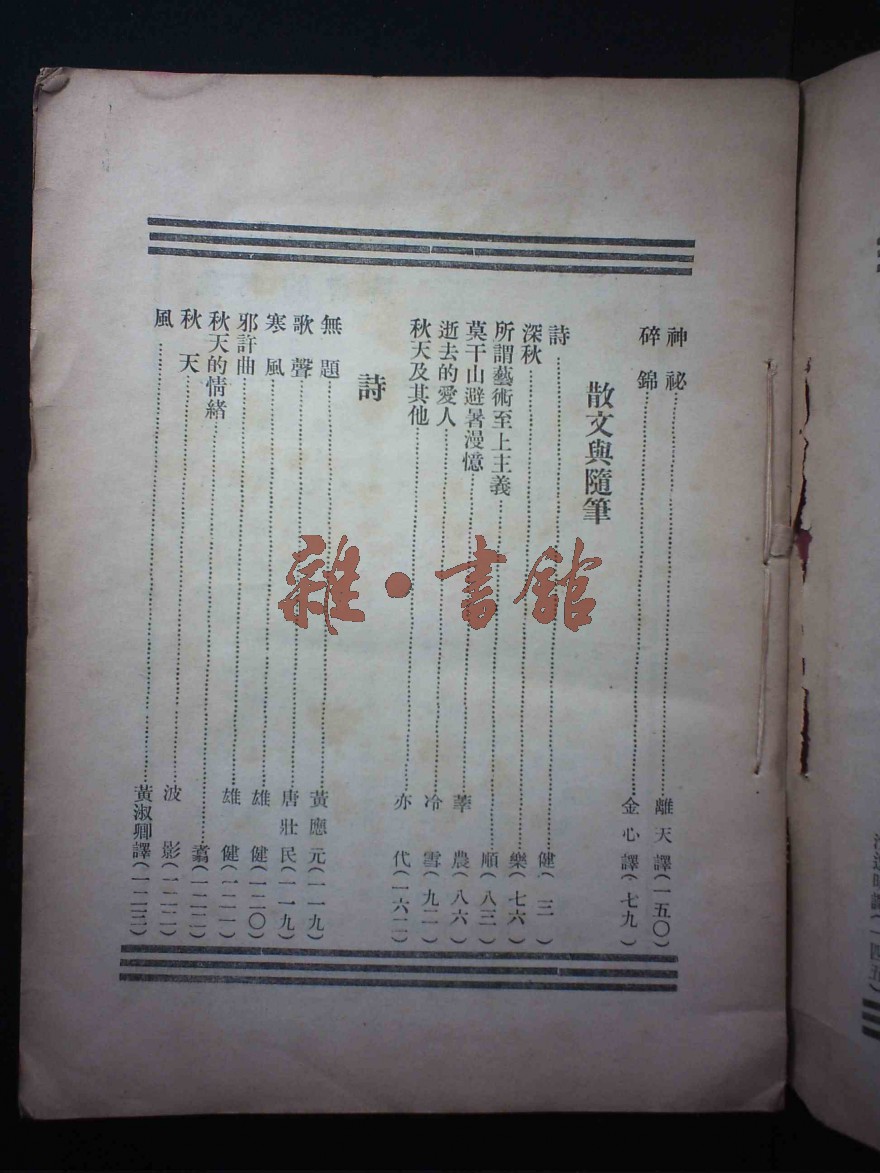 神祕……離天譯(一五〇)
碎錦……金心譯(七九)
散文與隨筆
詩……健(三)
深秋……樂(七六)
所謂藝術至上主義……順(八三)
莫干山避暑漫憶……莘農(八六)
逝去的愛人……冷雪(九二)
秋天及其他……亦代(一六二)
詩
無題……黃應元(一一九)
歌聲……唐壯民(一一九)
寒風……雄健(一二〇)
邪許曲……雄健(一二一)
秋天的情緒……翥(一二二)
秋天……波影(一二二)
風……黃淑卿譯(一二三)
雜·書館